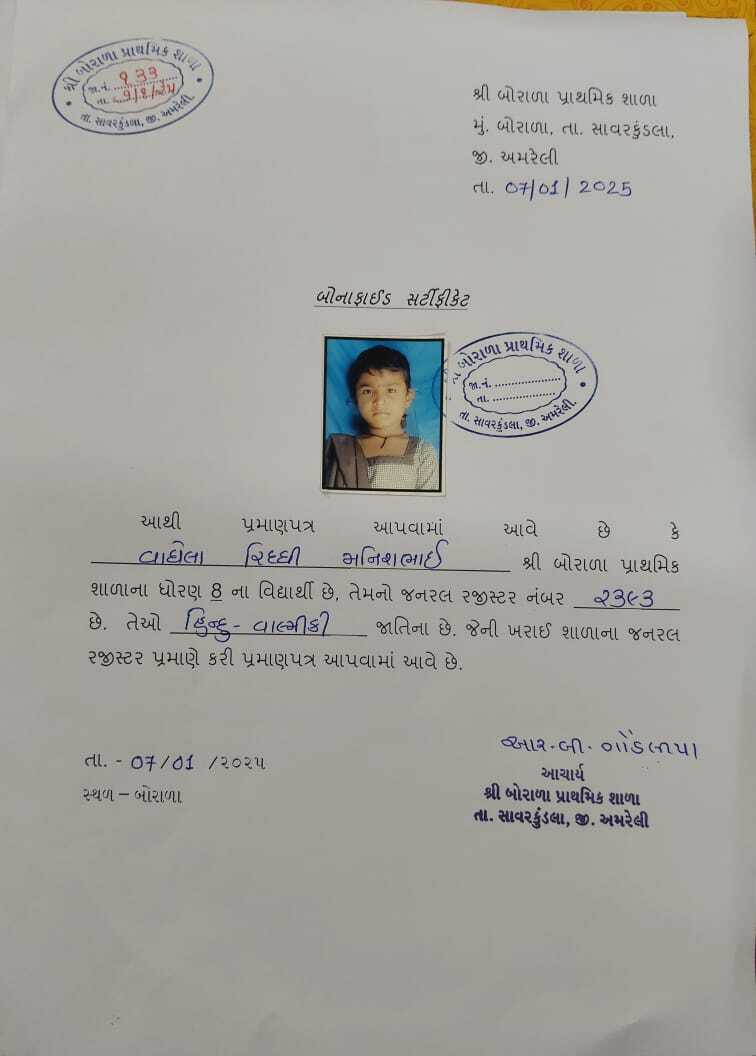 શ્રી બોરાળા પ્રાથમિક શાળા
જા.નં. ૧૩૩
તા.
તા. સાવરકુંડલા, જી. અમરેલી.
શ્રી બોરાળા પ્રાથમિક શાળા
મું. બોરાળા, તા. સાવરકુંડલા,
જી. અમરેલી
તા. 07/01/2025
બોનાફાઈડ સર્ટીફીકેટ
બોરાળા પ્રાથમિક શાળા
જા.નં. ....................
તા. ....................
તા. સાવરકુંડલા, જી. અમરેલી.
આથી પ્રમાણપત્ર આપવામાં આવે છે કે
વાઘેલા રિધ્ધી મનિશભાઈ શ્રી બોરાળા પ્રાથમિક
શાળાના ધોરણ 8 ના વિદ્યાર્થી છે, તેમનો જનરલ રજીસ્ટર નંબર ૨૩૯૩
છે. તેઓ હિન્દુ - વાલ્મીકી જાતિના છે. જેની ખરાઈ શાળાના જનરલ
રજીસ્ટર પ્રમાણે કરી પ્રમાણપત્ર આપવામાં આવે છે.
તા. - 07/01 /૨૦૨૫
સ્થળ – બોરાળા
આર.બી.
આચાર્ય
શ્રી બોરાળા પ્રાથમિક શાળા
તા. સાવરકુંડલા, જી. અમરેલી